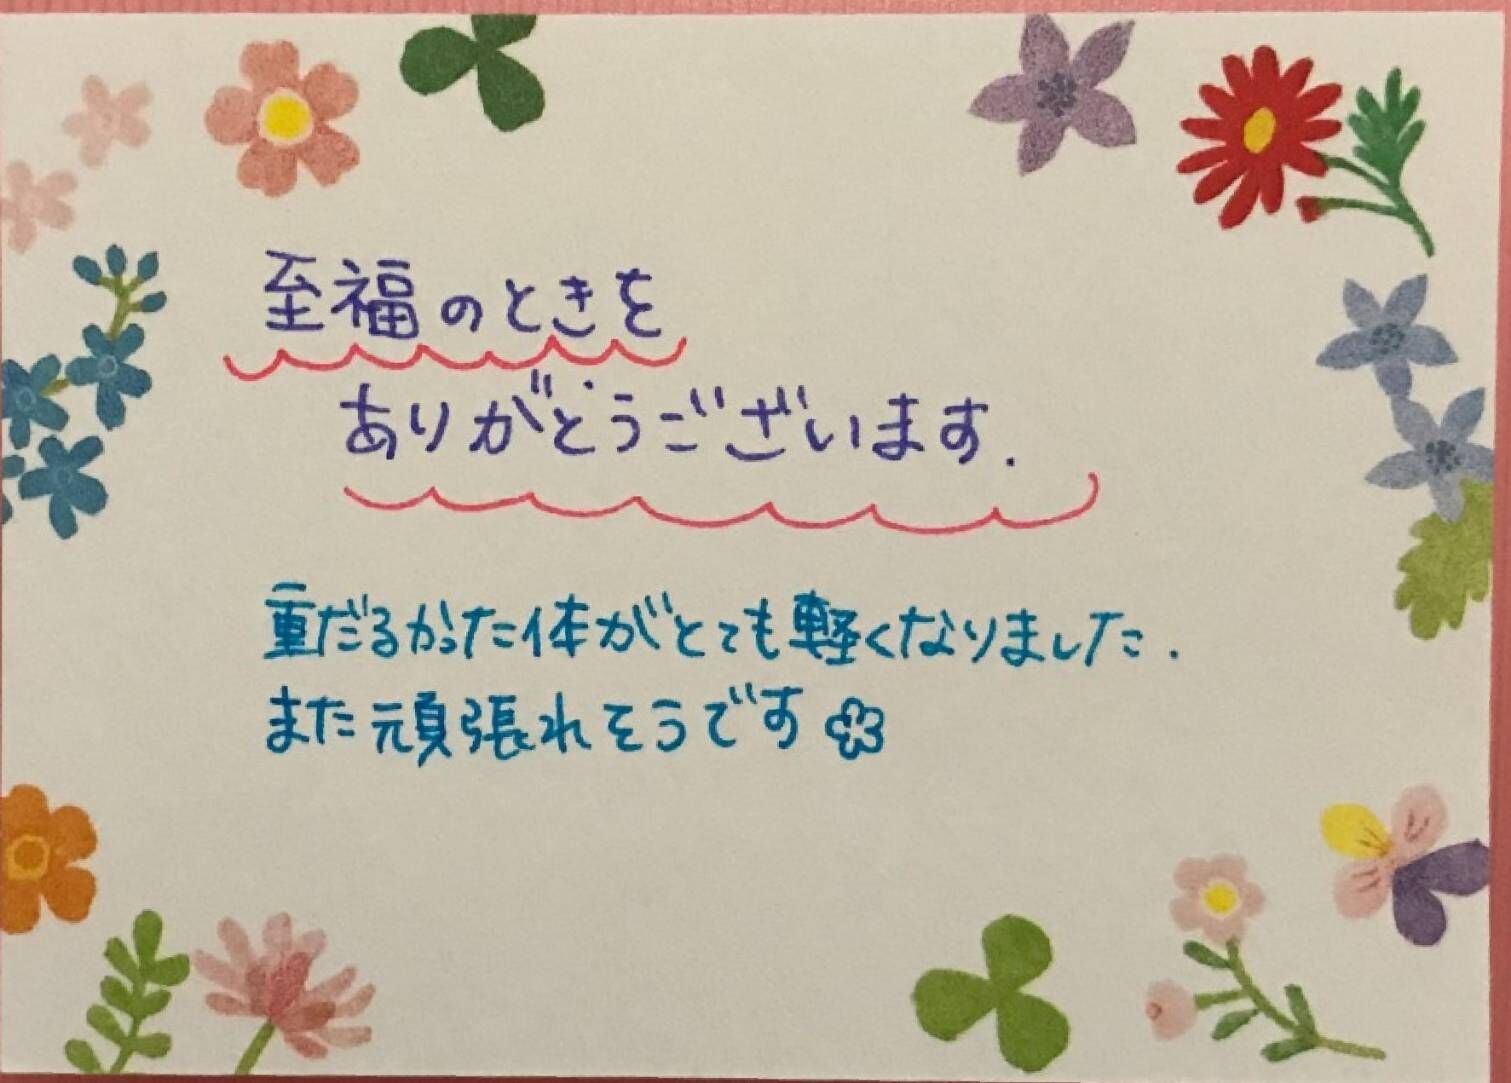 至福のときを
ありがとうございます.
重だるかった体がとても軽くなりました.
また頑張れそうです